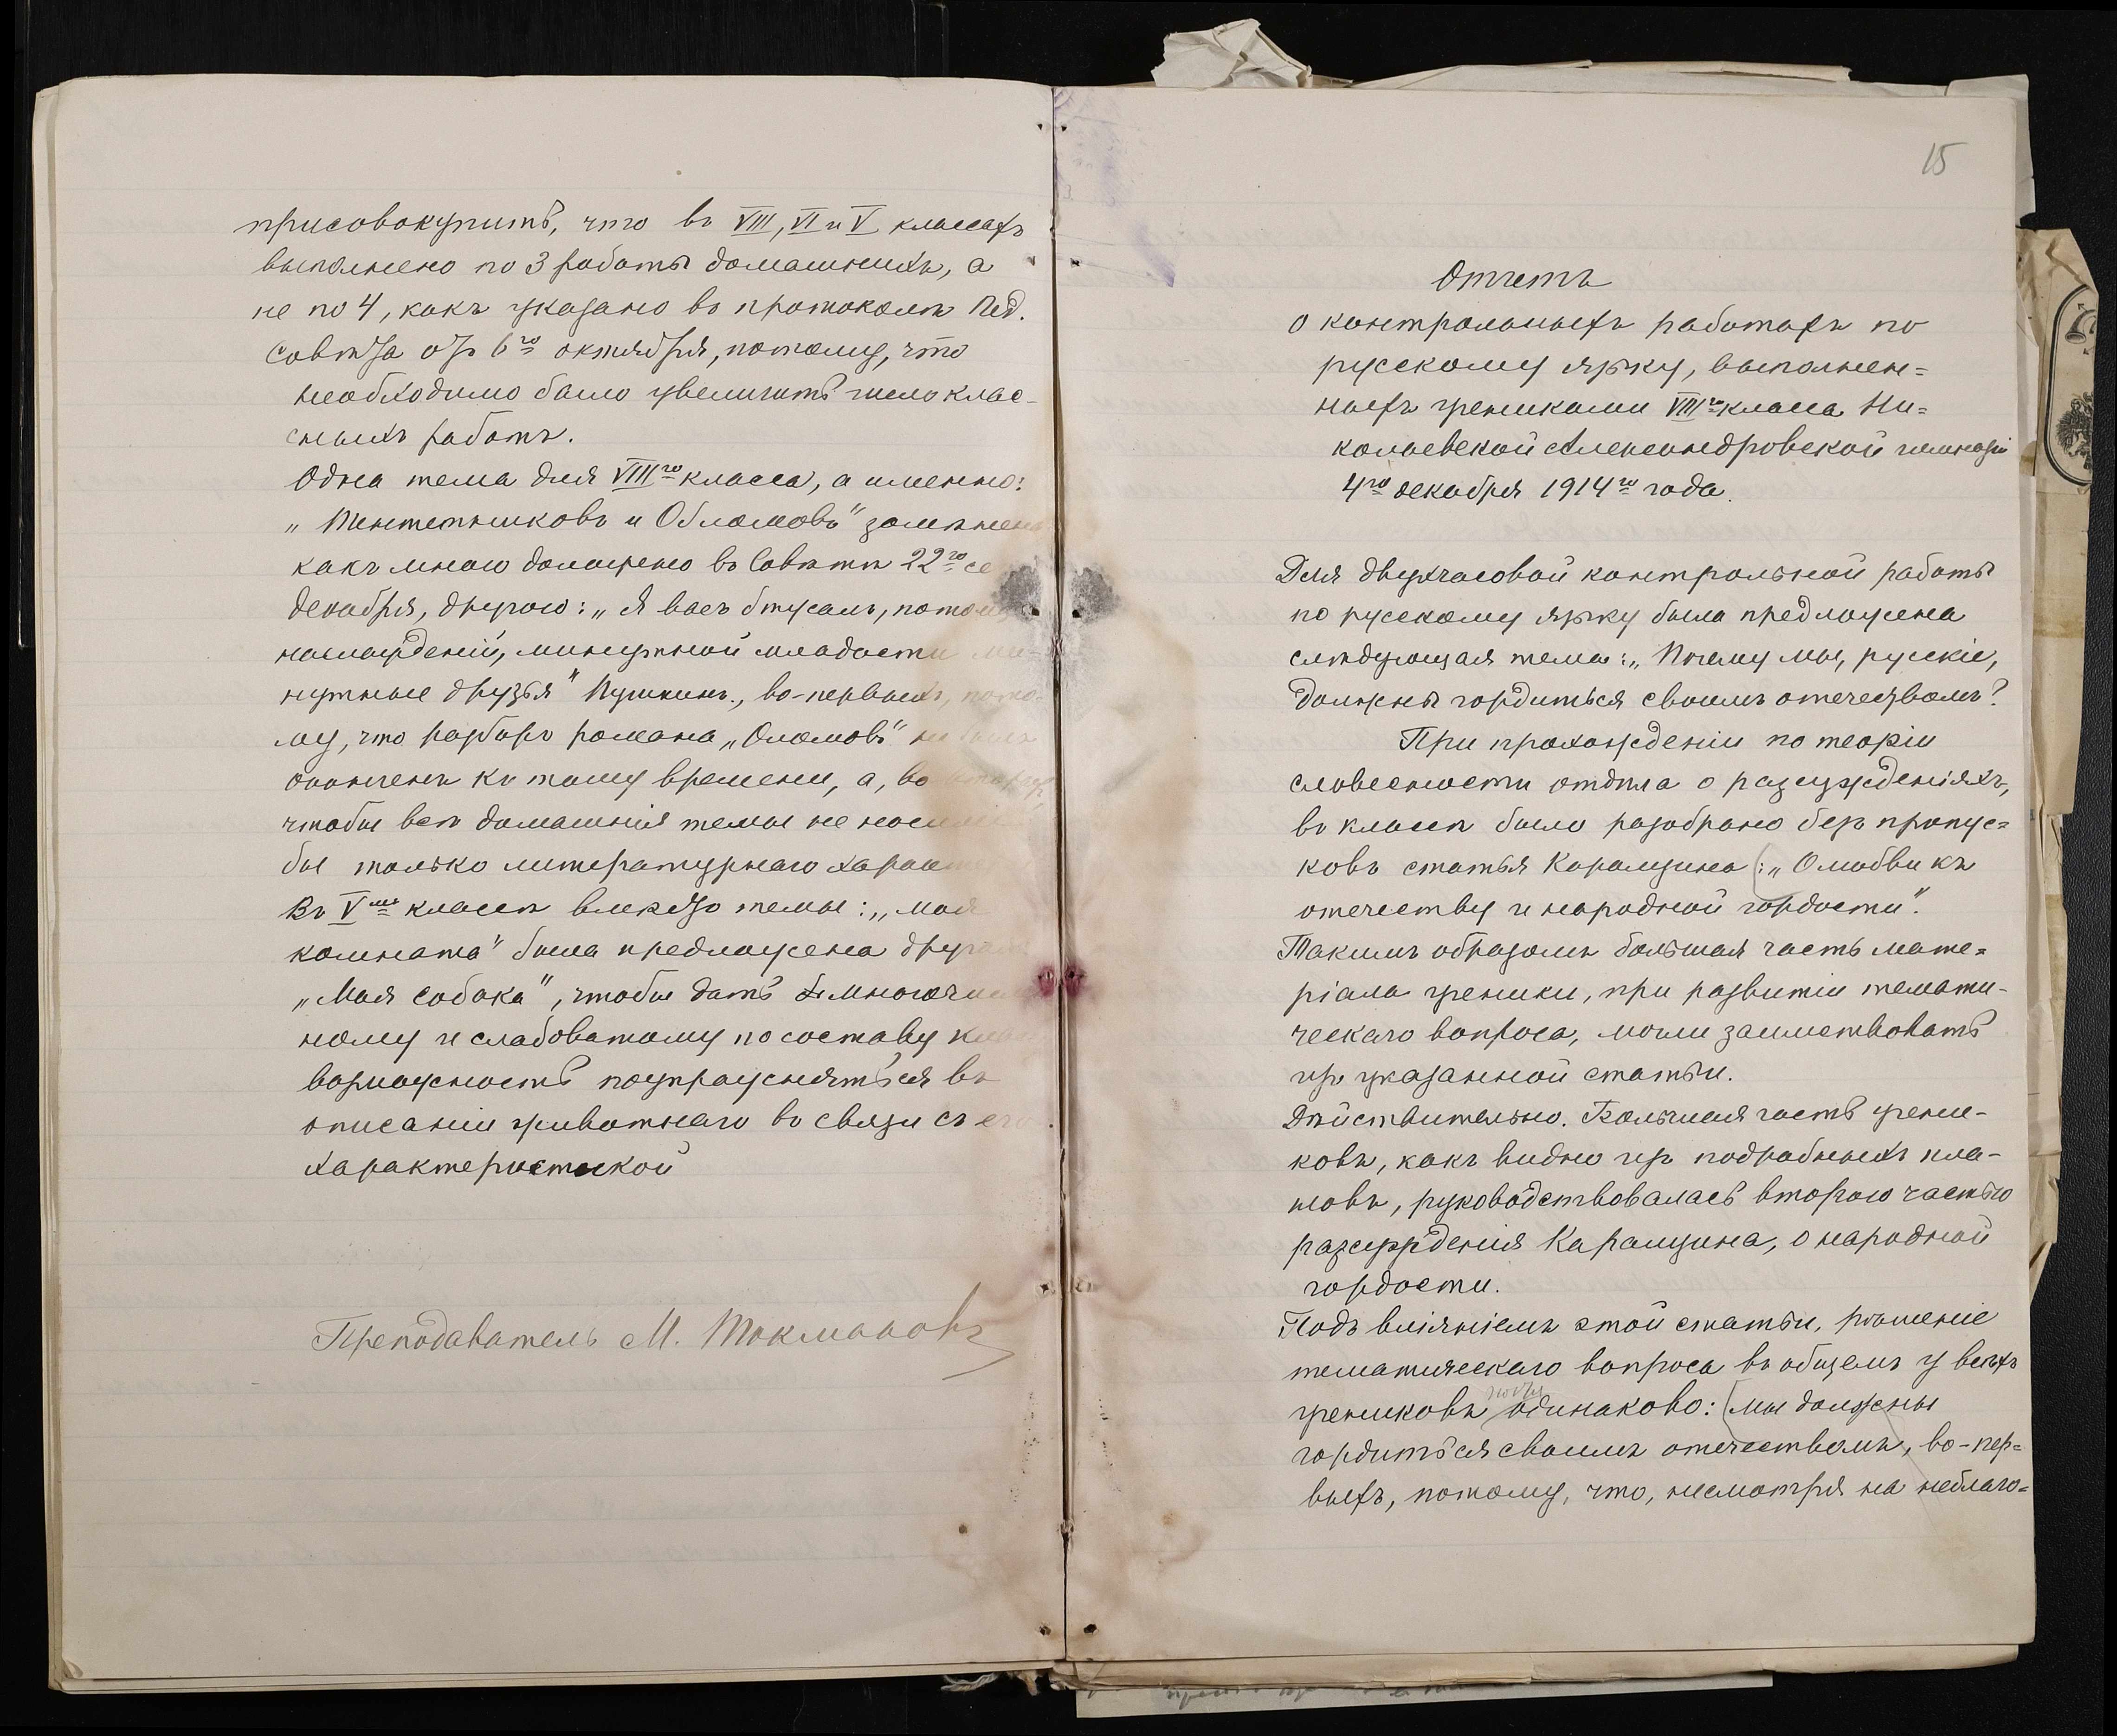 присовокупить, что въ VIII, VI и V классахъ
выполнено по 3 работы домашнихъ, а
не по 4, какъ указано въ протоколѣ Пед.
Совѣта отъ 6го октября, потому, что
необходимо было увеличить число клас-
сныхъ работъ.
Одна тема для VIIIго класса, а именно:
„Тентетниковъ и Обломовъ" замѣнена
какъ мною доложено въ Совѣтѣ 22го се
декабря, другою: „Я васъ бѣгу самъ, потомъ
наслажденій, минутной младости ми-
нутные друзья" Пушкинъ., во-первыхъ, пото-
му, что разборъ романа „Оломовъ" не былъ
оконченъ къ тому времени, а, во вторыхъ,
чтобы всѣ домашнія темы не носили
бы только литературнаго характ
Въ Vмъ классѣ вмѣсто темы: „Моя
комната" была предложена другая
„Моя собака", чтобы дать многочис
ному и слабоватому по составу классу
возможность поупражняться въ
описаніи животнаго въ связи съ его
характеристикой
Преподаватель М. Токмаковъ
15
Отчетъ
о контрольныхъ работахъ по
русскому языку, выполнен=
ныхъ учениками VIIIго класса Ни=
колаевской Александровской гимназіи
4го декабря 1914го года.
Для двухчасовой контрольной работы
по русскому языку была предложена
слѣдующая тема: „Почему мы, русскіе,
должны гордиться своимъ отечествомъ?
При прохожденіи по теоріи
словесности отдѣла о разсужденіяхъ,
въ классѣ было разобрано безъ пропус=
ковъ статья Карамзина: „О любви къ
отечеству и народной гордости".
Такимъ образомъ большая часть мате=
ріала ученики, при развитіи темати-
ческаго вопроса, могли заимствовать
изъ указанной статьи.
Дѣйствительно. Большая часть учени-
ковъ, какъ видно изъ подробныхъ пла-
новъ, руководствовалась второю частью
разсужденія Карамзина, о народной
гордости.
Подъ вліяніемъ этой статьи, рѣшеніе
тематическаго вопроса въ общемъ у всѣхъ
почти
учениковъ одинаково: (мы должны
гордиться своимъ отечествомъ, во-пер=
выхъ, потому, что, несмотря на неблаго=